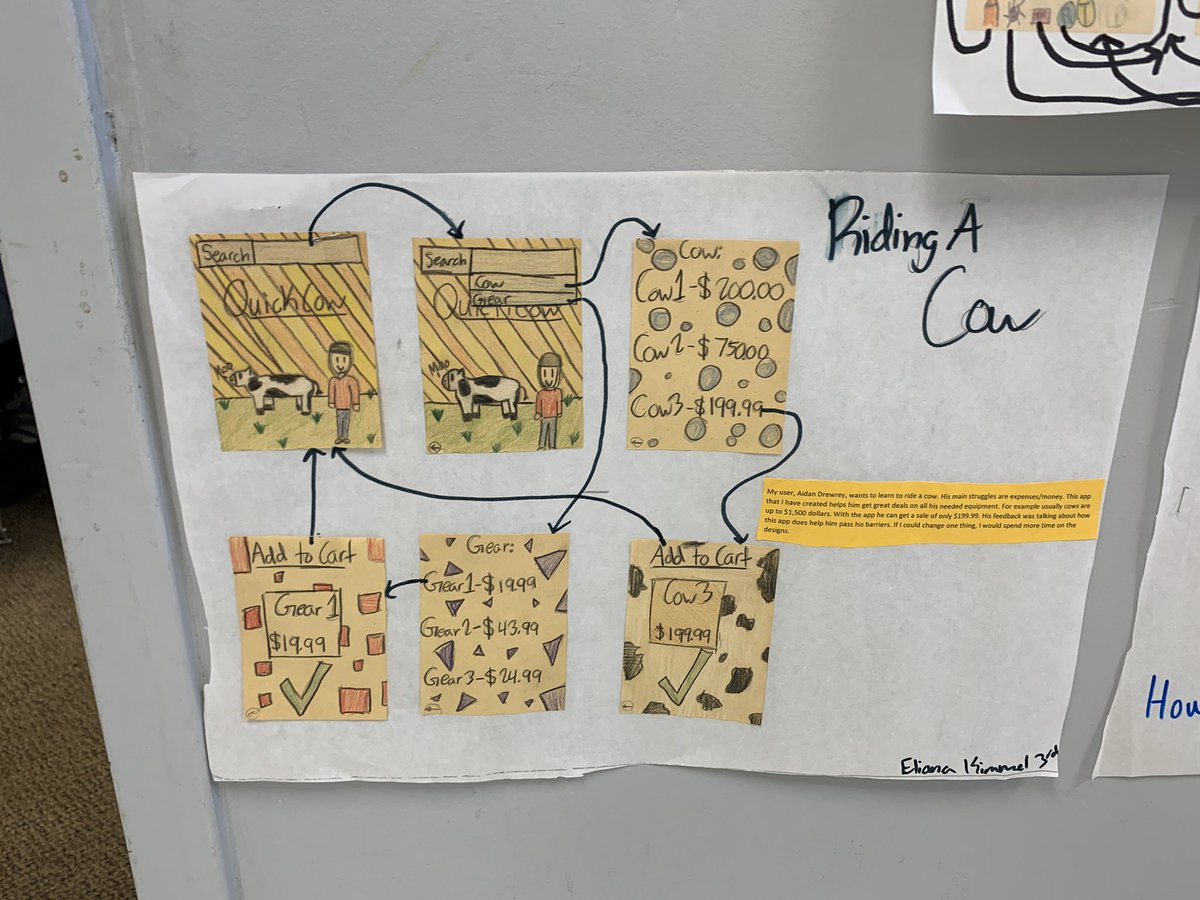 Riding A
Cow
Search
QuickCow
Moo
Search
Cow
Gear
QuickCow
Moo
Cow:
Cow1-$200.00
Cow2-$750.00
Cow3-$199.99
My user, Aidan Drewrey, wants to learn to ride a cow. His main struggles are expenses/money. This app
that I have created helps him get great deals on all his needed equipment. For example usually cows are
up to $1,500 dollars. With the app he can get a sale of only $199.99. His feedback was talking about how
this app does help him pass his barriers. If I could change one thing, I would spend more time on the
designs.
Add to Cart
Gear 1
$19.99
Gear:
Gear1-$19.99
Gear2-$43.99
Gear3-$24.99
Add to Cart
Cow3
$199.99
Eliana Kimmel 3rd